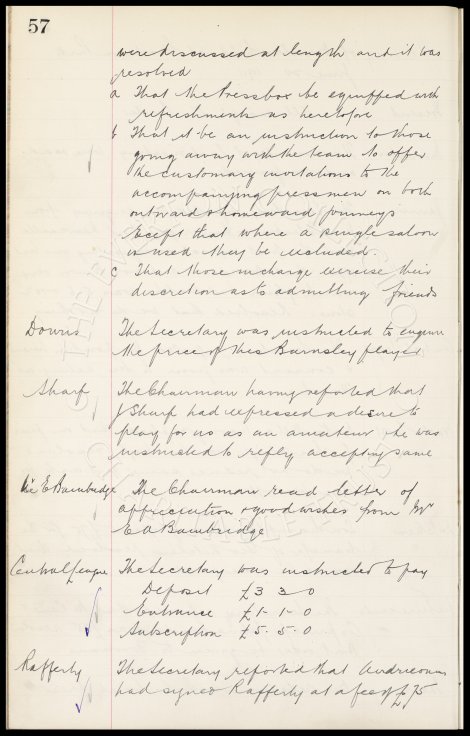 57
were discussed at length and it was
resolved
a That the Pressbox be equipped with
refreshments as heretofore
b That it be an instruction to those
going away with the team to offer
the customary invitations to the
accompanying pressmen on both
outward & homeward journeys
Except that where a single saloon
is used they be excluded.
c That those in charge exercise their
discretion as to admitting friends
Downs The Secretary was instructed to enquire
the price of this Barnsley player
Sharp The Chairman having reported that
J Sharp had expressed a desire to
play for us as an amateur he was
instructed to reply accepting same
E Bainbridge The Chairman read letter of
appreciation & good wishes from Mr
E A Bainbridge
Central League The Secretary was instructed to pay
Deposit £3 3 0
Entrance £1 - 1 - 0
Subscription £5. 5. 0
Rafferty The Secretary reported that Airdrieonians
had signed Rafferty at a fee of £75